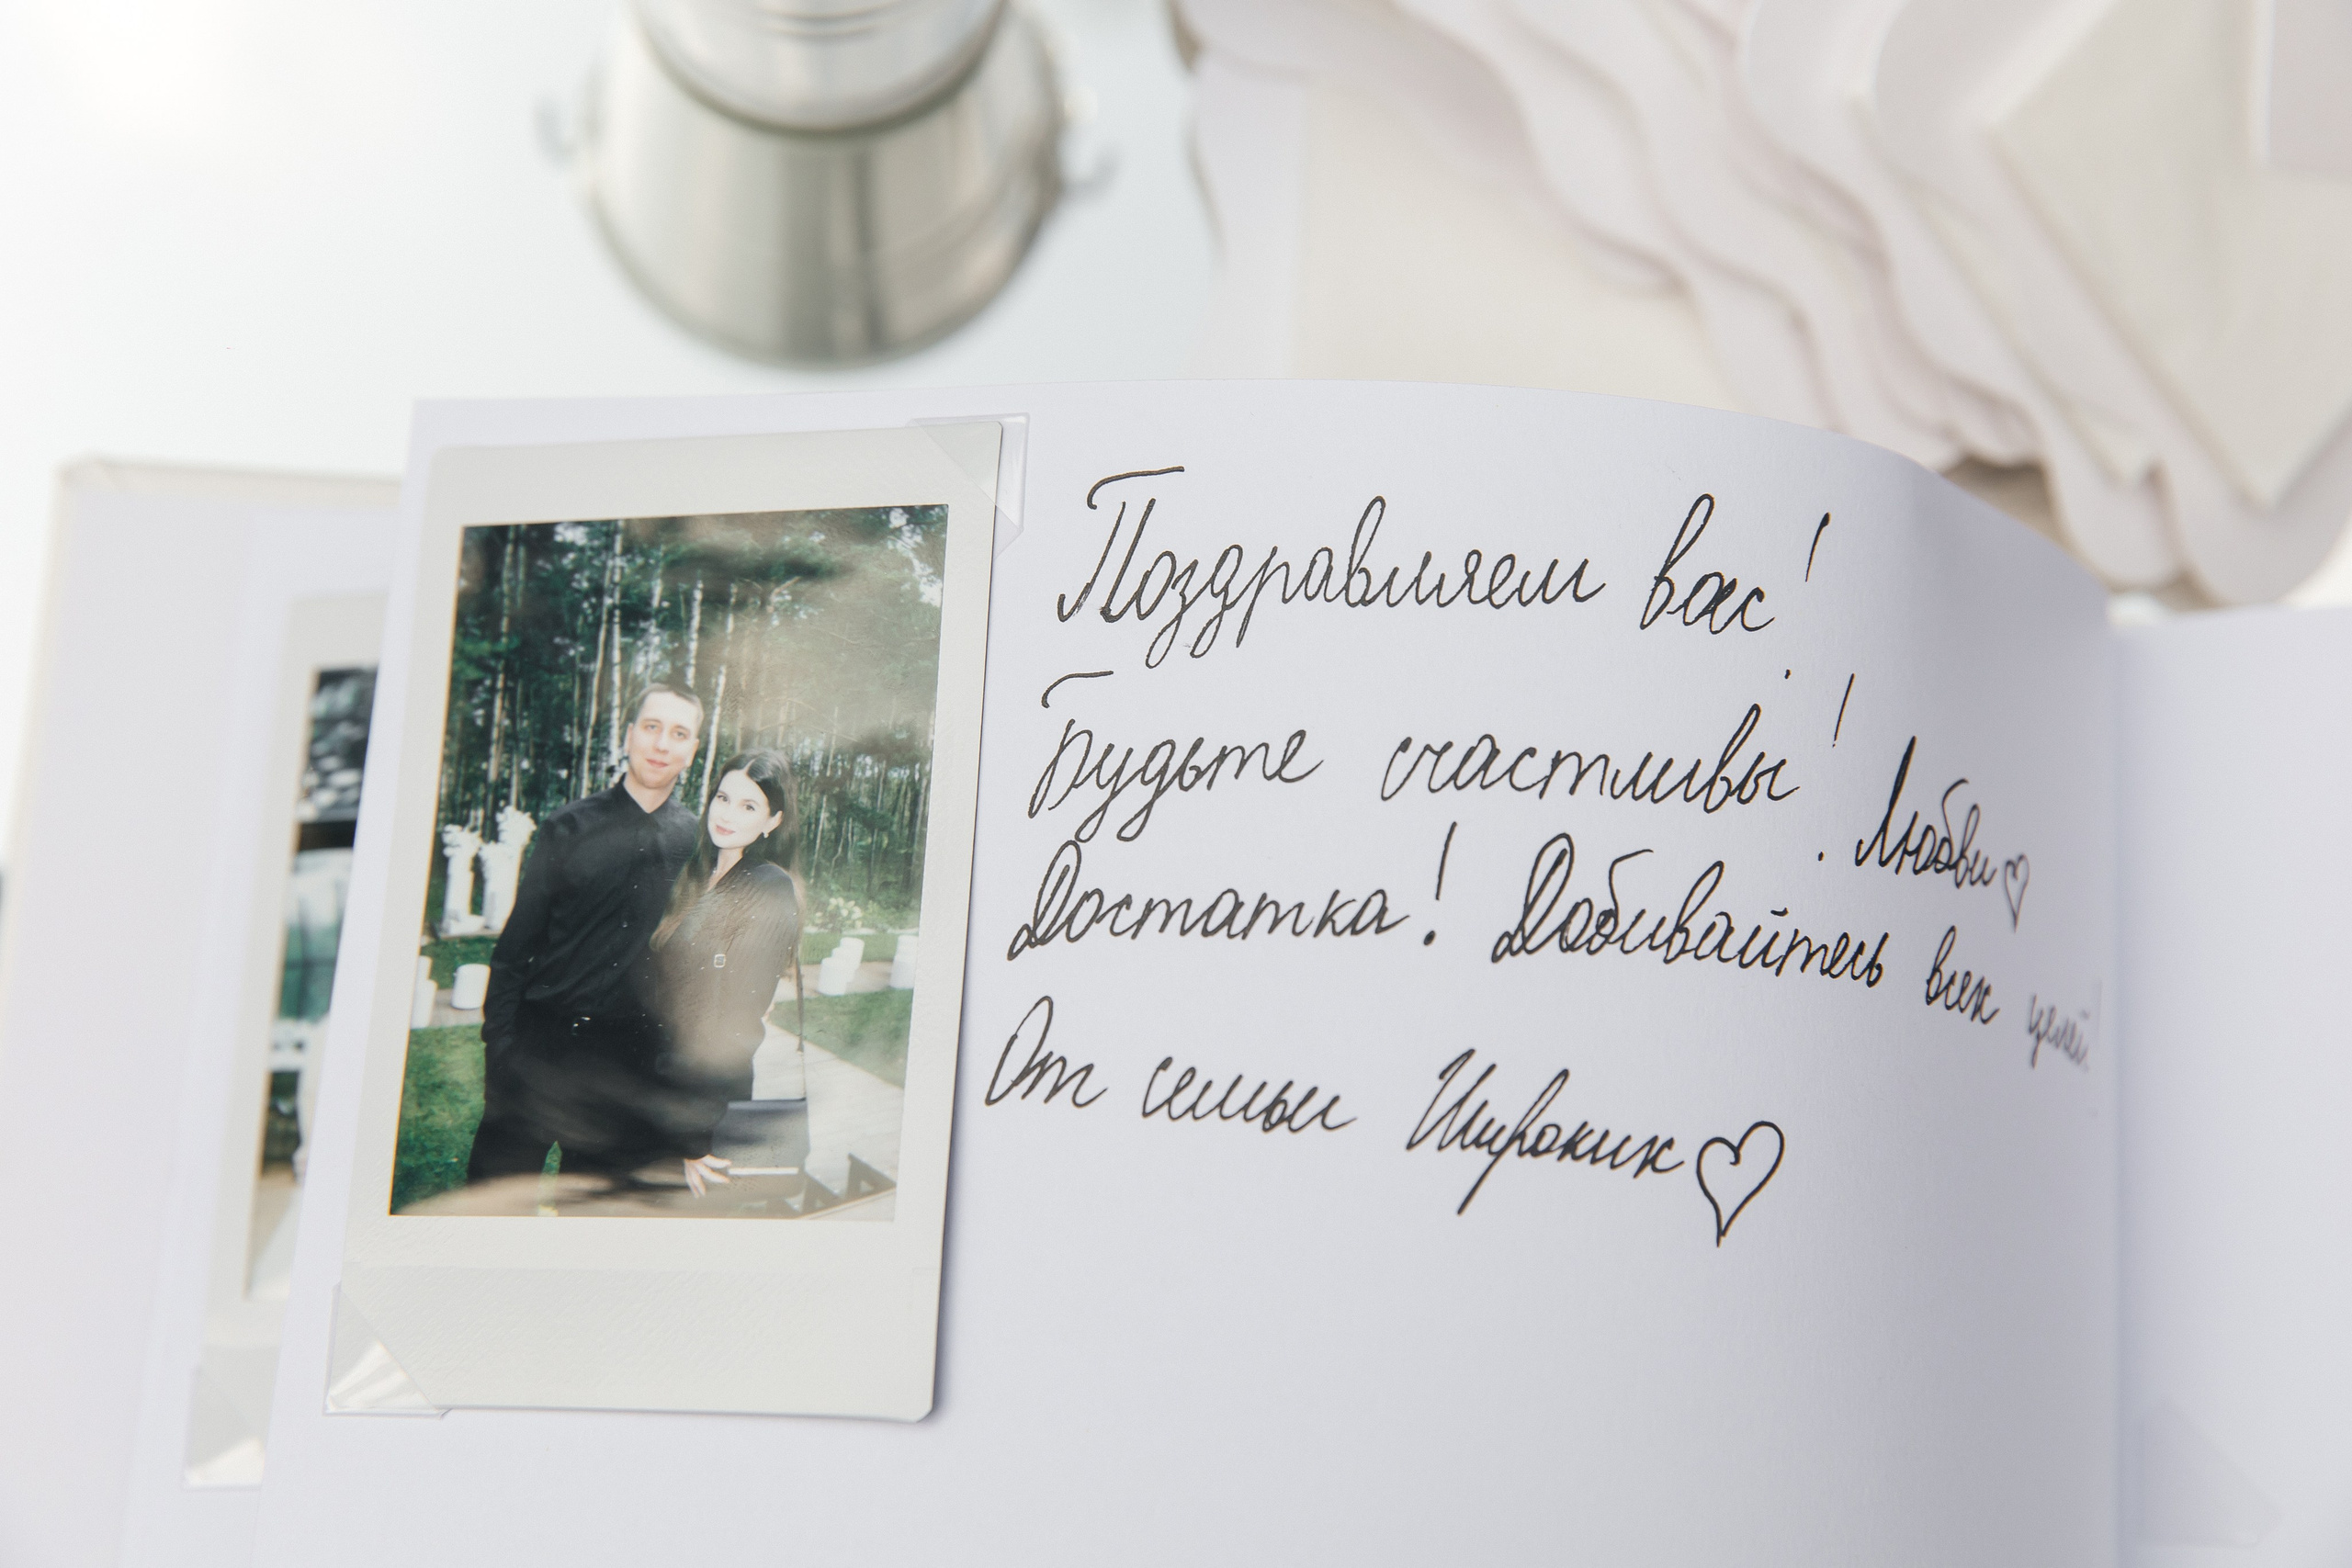 Поздравляем вас!
Будьте счастливы!
Любви♡
Достатка! Добивайтесь всех целей!
От семьи Широких♡